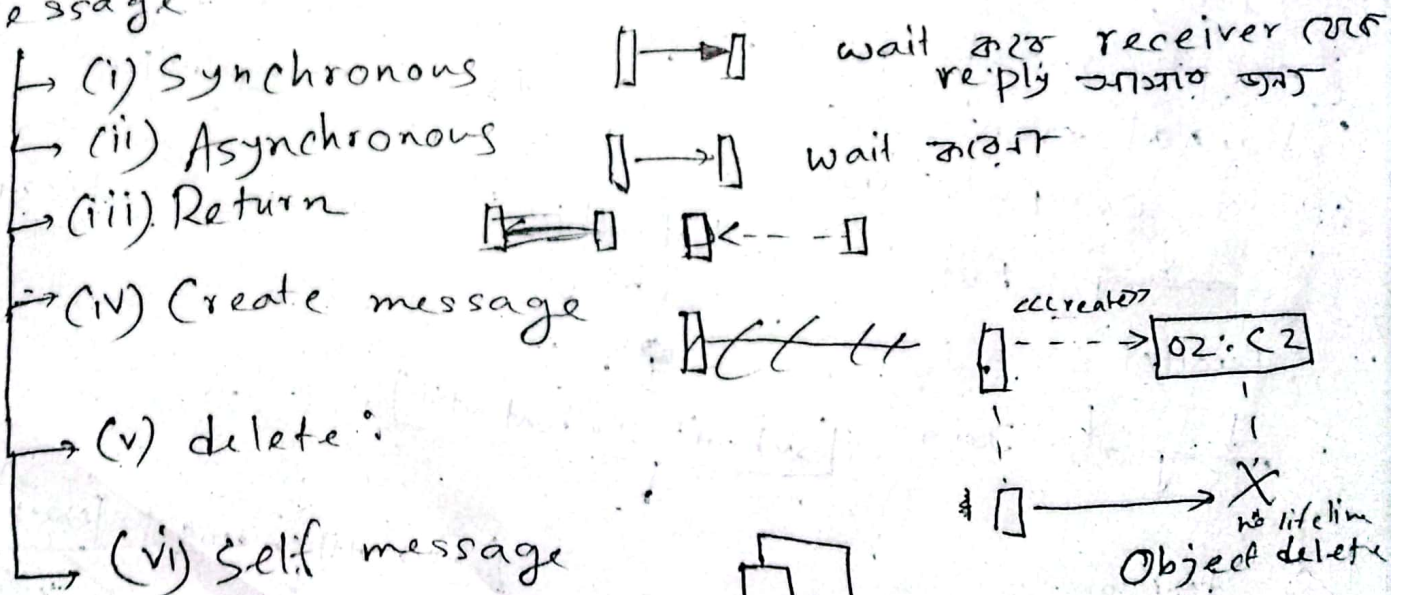 essage
(i) Synchronous wait করে receiver থেকে
reply আসার জন্য
(ii) Asynchronous wait করেনা
(iii). Return
(iv) Create message <<create>>
O2: C2
(v) delete:
no lifeline
(vi) self message Object delete